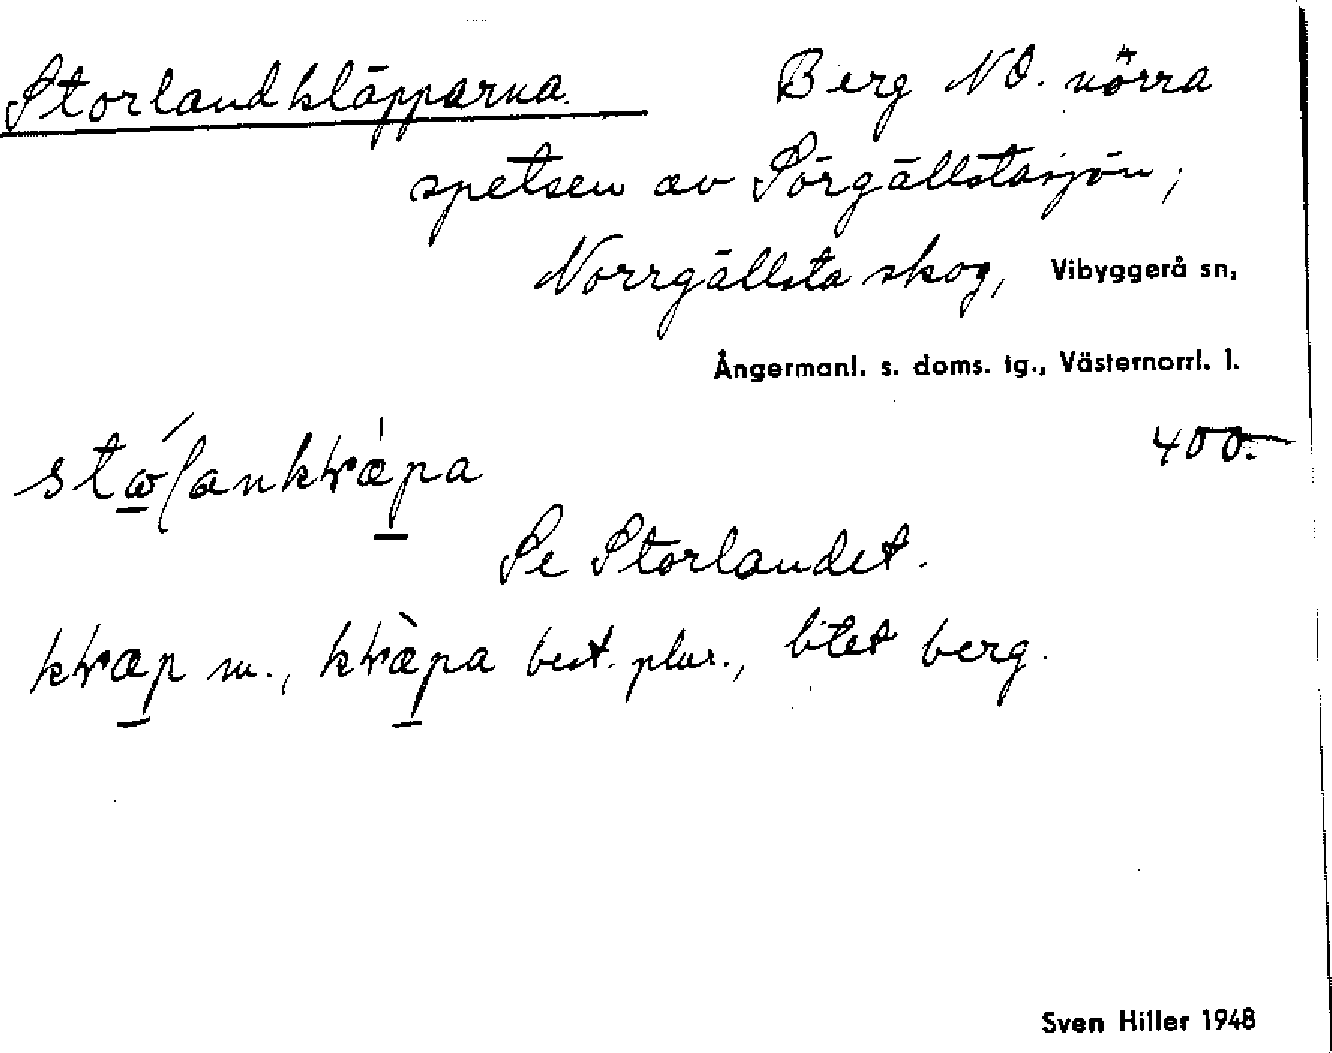 Storlandkläpparna. Berg NO. norra
spetsen av Sörgällstasjön;
Norrgällsta skog, Vibyggerå sn,
Ångermanl. s. doms. tg., Västernorrl. l.
400.
Se Storlandet.
m., best. plur., litet berg.
Sven Hiller 1948